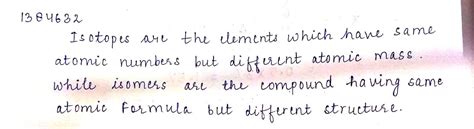 1384632
Isotopes are the elements which have same
atomic numbers but different atomic mass.
while isomers are the compound having same
atomic formula but different structure.